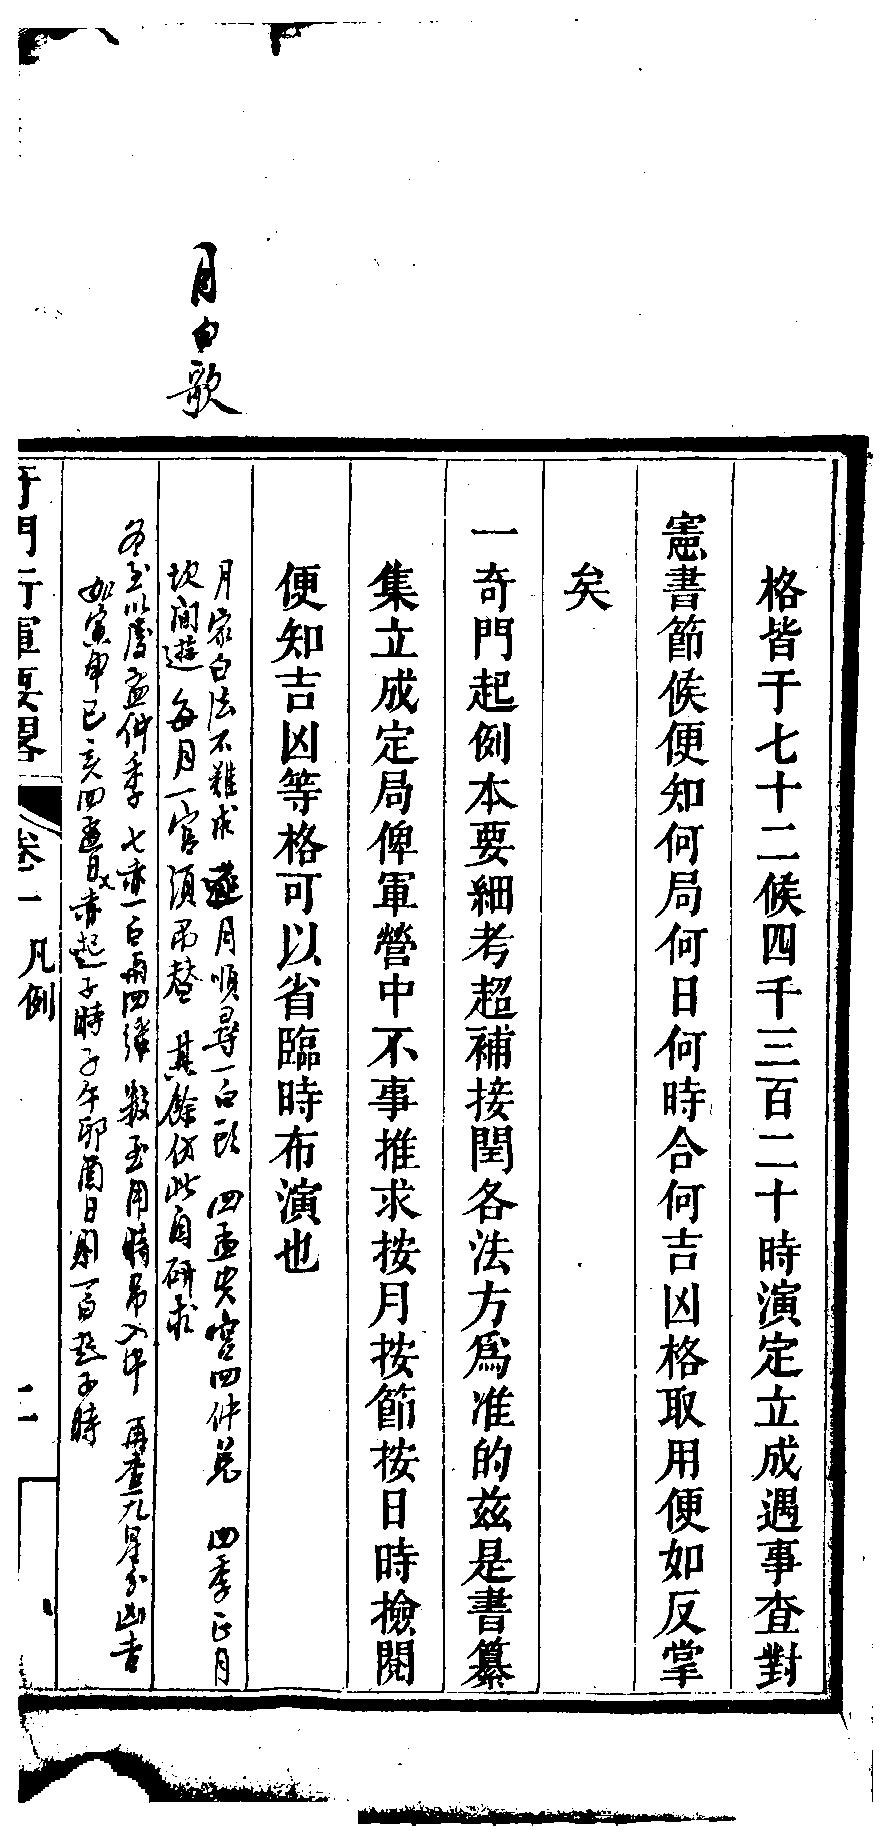 格皆于七十二候四千三百二十時演定立成遇事查對
憲書節候便知何局何日何時合何吉凶格取用便如反掌
矣
一奇門起例本要細考超補接閏各法方爲准的茲是書纂
集立成定局俾軍營中不事推求按月按節按日時撿閱
便知吉凶等格可以省臨時布演也
月白歌
月家白法不難求 月順尋一白 四孟 宮四仲兌 四季正月
坎間遊 每月一宮須吊替 其餘仿此自研求
冬至以 孟仲季 七赤一白 四 數至用時吊入中 再查九星 凶吉
如寅申巳亥四孟日 赤起子時子午卯酉日用一白起子時
奇門行軍要畧
卷一 凡例
二